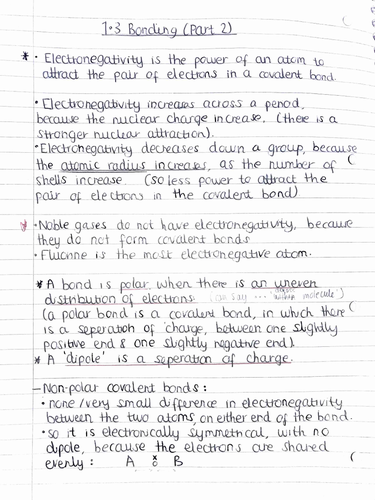 1.3 Bonding (Part 2)
* • Electronegativity is the power of an atom to
attract the pair of electrons in a covalent bond.
• Electronegativity increases across a period,
because the nuclear charge increase. (there is a
stronger nuclear attraction).
• Electronegativity decreases down a group, because
the atomic radius increases, as the number of
shells increase. (so less power to attract the
pair of electrons in the covalent bond)
* • Noble gases do not have electronegativity, because
they do not form covalent bonds
• Fluorine is the most electronegative atom.
* A bond is polar when there is an uneven
distribution of electrons (can say ... within molecule)
(a polar bond is a covalent bond, in which there
is a seperation of charge, between one slightly
positive end & one slightly negative end)
* A 'dipole' is a seperation of charge.
– Non-polar covalent bonds:
• none/very small difference in electronegativity
between the two atoms, on either end of the bond.
• so it is electronically symmetrical, with no
dipole, because the electrons are shared
evenly: A B